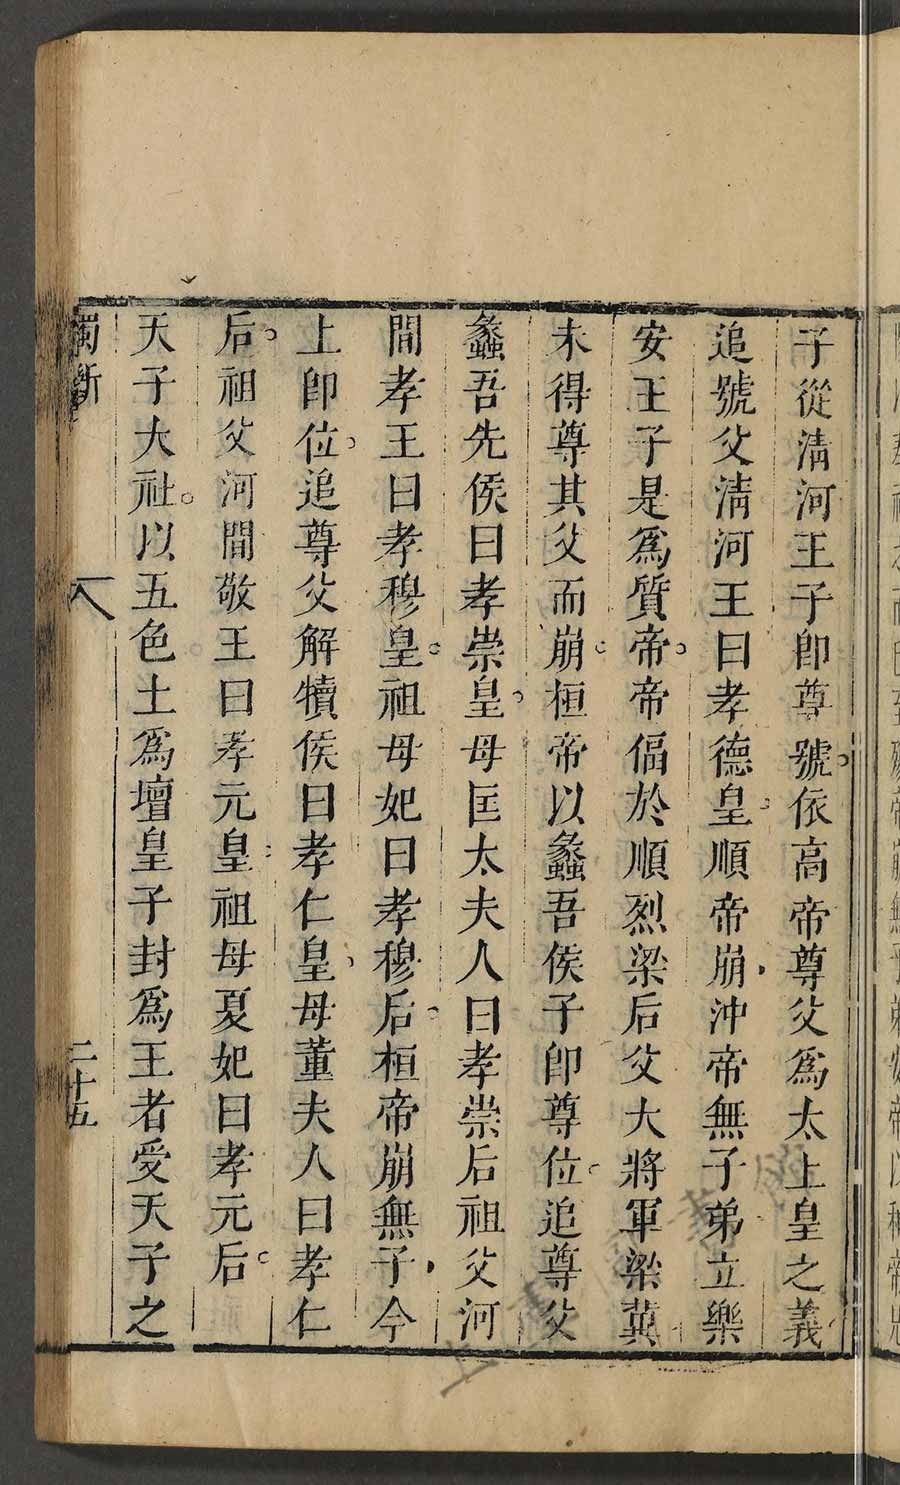 子從清河王子卽尊號依高帝尊父爲太上皇之義
追號父清河王曰孝德皇順帝崩沖帝無子弟立樂
安王子是爲質帝帝偪於順烈梁后父大將軍梁冀
未得尊其父而崩桓帝以蠡吾侯子卽尊位追尊父
蠡吾先侯曰孝崇皇母匡太夫人曰孝崇后祖父河
間孝王曰孝穆皇祖母妃曰孝穆后桓帝崩無子今
上卽位追尊父解犢侯曰孝仁皇母董夫人曰孝仁
后祖父河間敬王曰孝元皇祖母夏妃曰孝元后
天子大社以五色土爲壇皇子封爲王者受天子之
獨斷 八 二十五